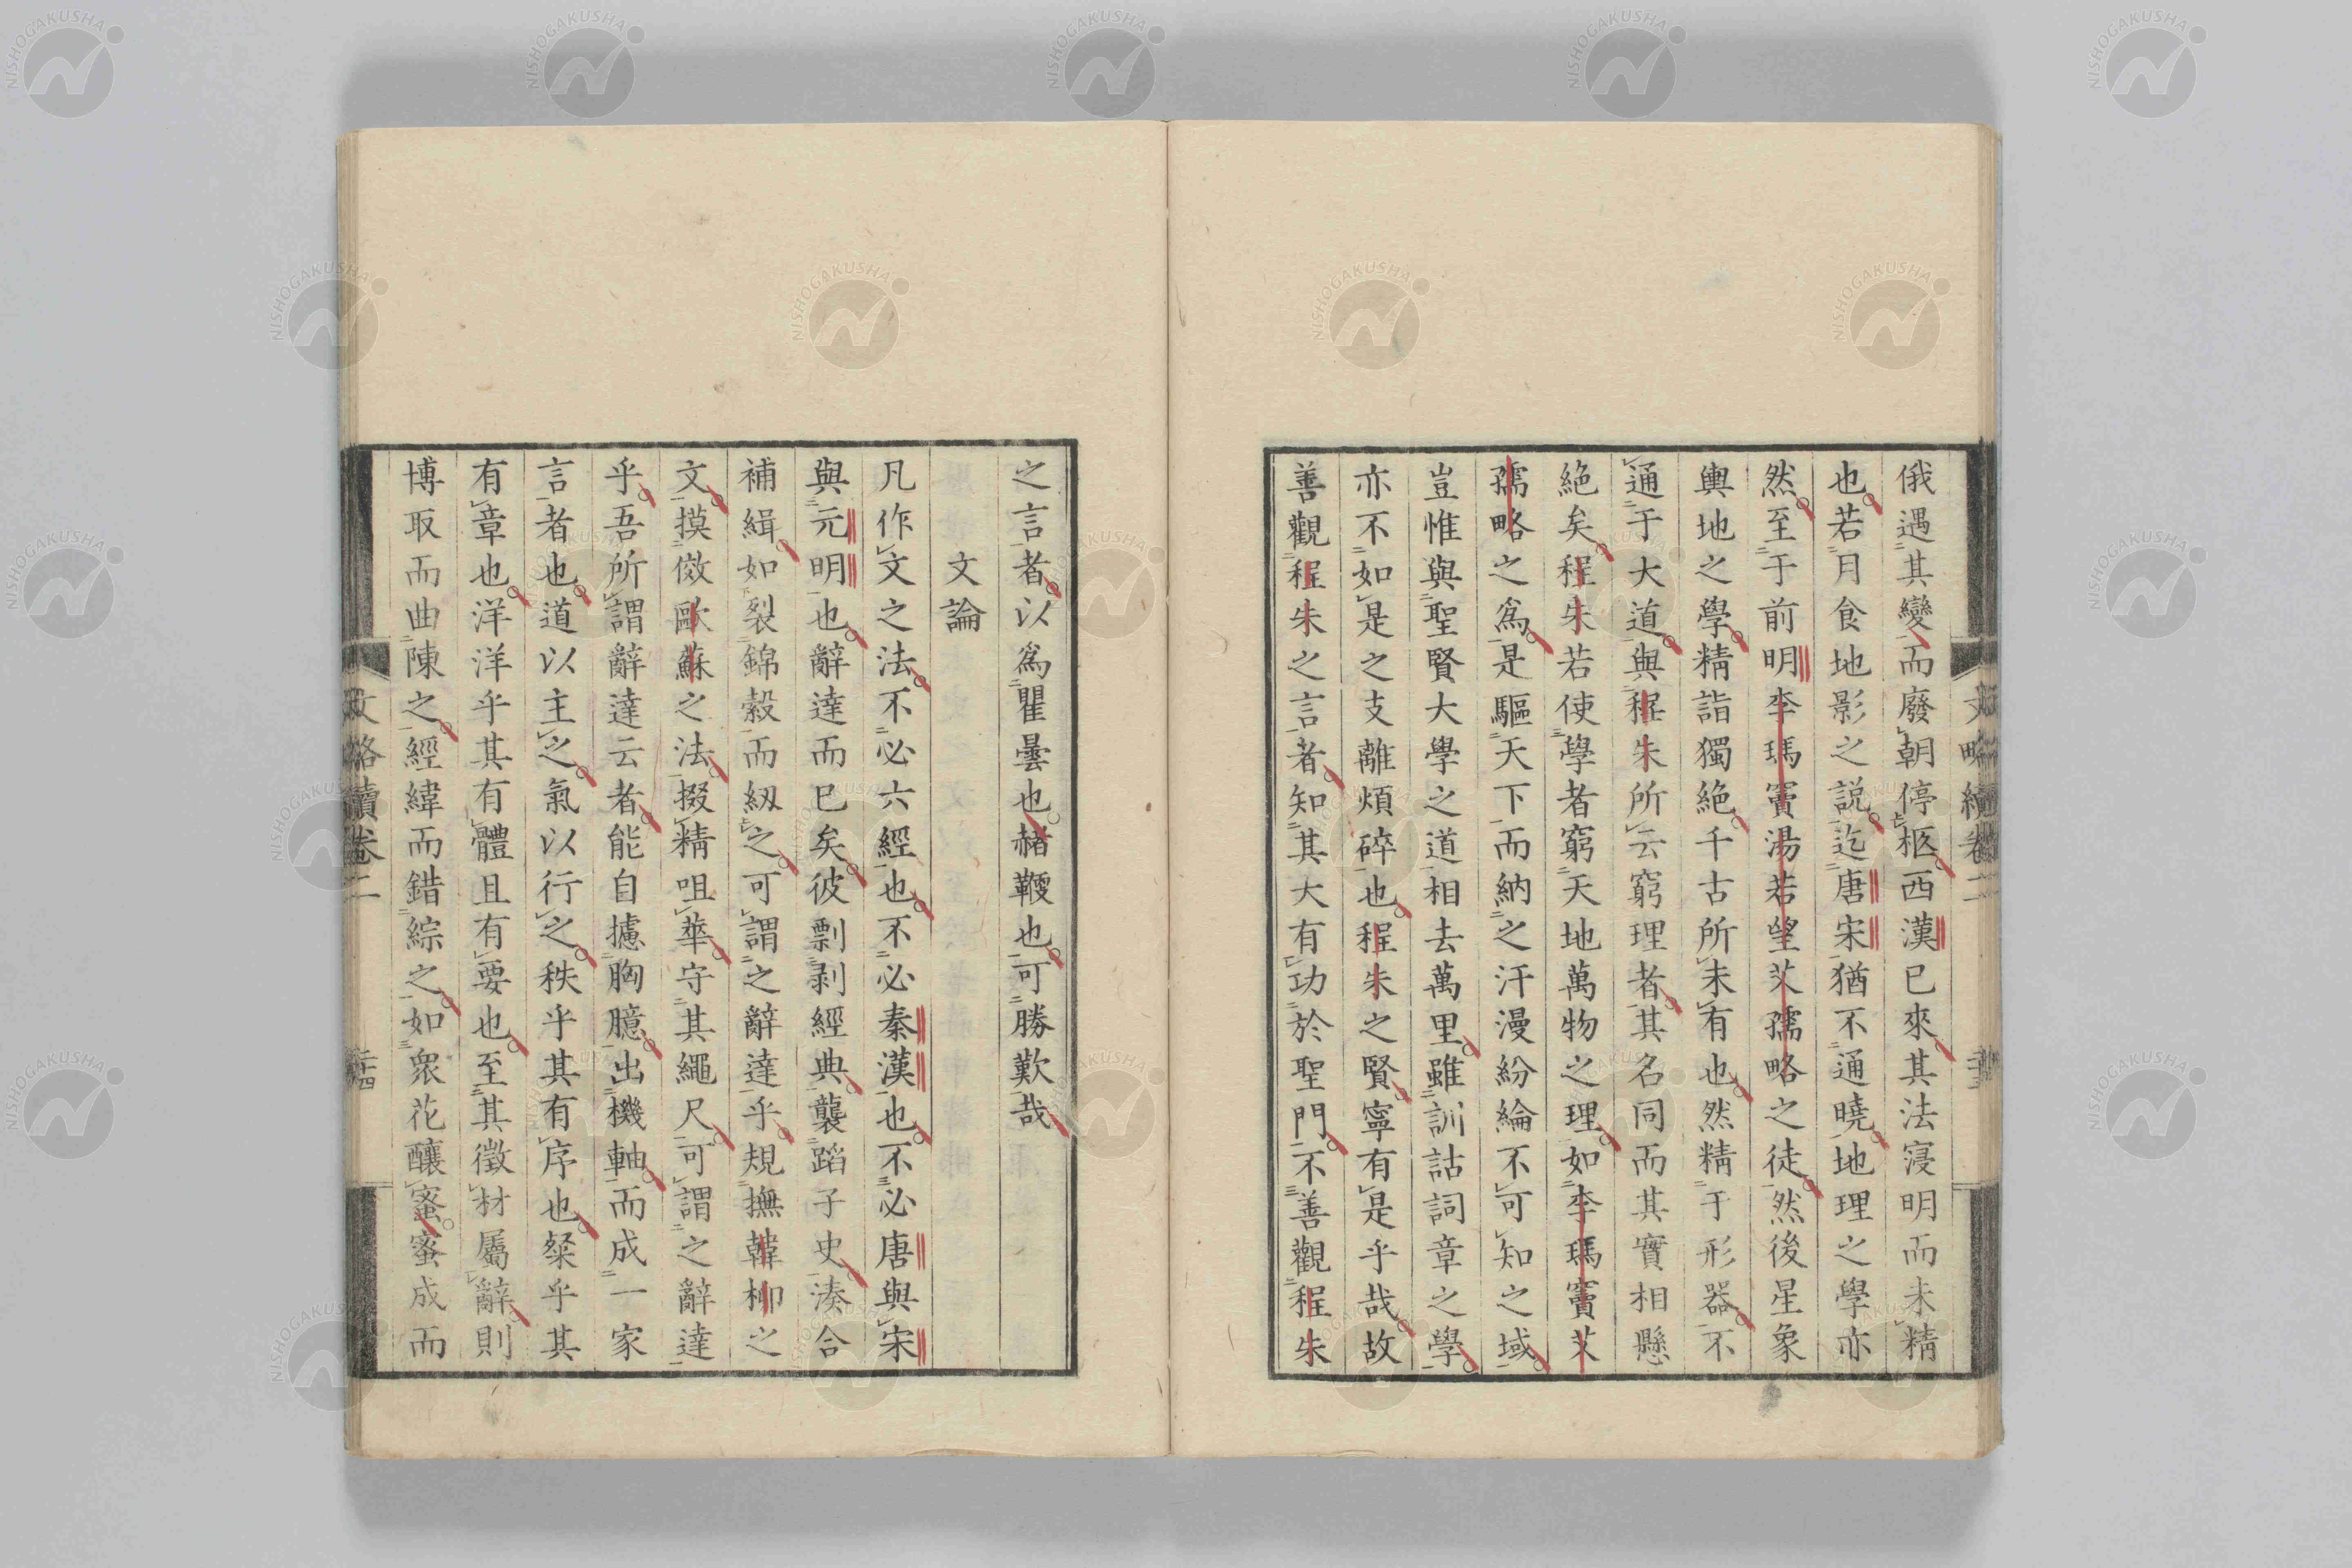 俄遇其變而廢朝停柩西漢已來其法寖明而未精
也若月食地影之説迄唐宋猶不通曉地理之學亦
然至于前明李瑪竇湯若望艾孺略之徒然後星象
輿地之學精詣獨絶千古所未有也然精于形器不
通于大道與程朱所云窮理者其名同而其實相懸
絶矣程朱若使學者窮天地萬物之理如李瑪竇艾
孺略之爲是驅天下而納之汗漫紛綸不可知之域
豈惟與聖賢大學之道相去萬里雖訓詁詞章之學
亦不如是之支離煩碎也程朱之賢寧有是乎哉故
善觀程朱之言者知其大有功於聖門不善觀程朱
之言者以爲瞿曇也赭鞭也可勝歎哉
文論
凡作文之法不必六經也不必秦漢也不必唐與宋
與元明也辭達而已矣彼剽剥經典襲蹈子史湊合
補緝如裂錦縠而紉之可謂之辭達乎規撫韓柳之
文摸倣歐蘇之法掇精咀華守其繩尺可謂之辭達
乎吾所謂辭達云者能自攄胸臆出機軸而成一家
言者也道以主之氣以行之秩乎其有序也粲乎其
有章也洋洋乎其有體且有要也至其徵材屬辭則
博取而曲陳之經緯而錯綜之如衆花釀蜜蜜成而
文略續卷二
NISHOGAKUSHA